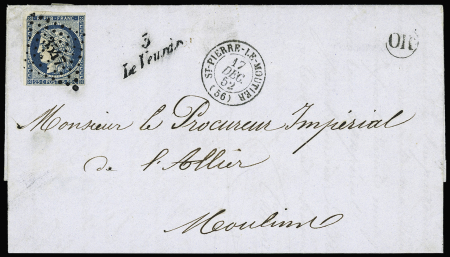 3
Le Veurdre
ST-PIERRE-LE-MOUTIER
17
DEC.
52
(56)
OR
Monsieur le Procureur Impérial
de l'Allier
Moulins